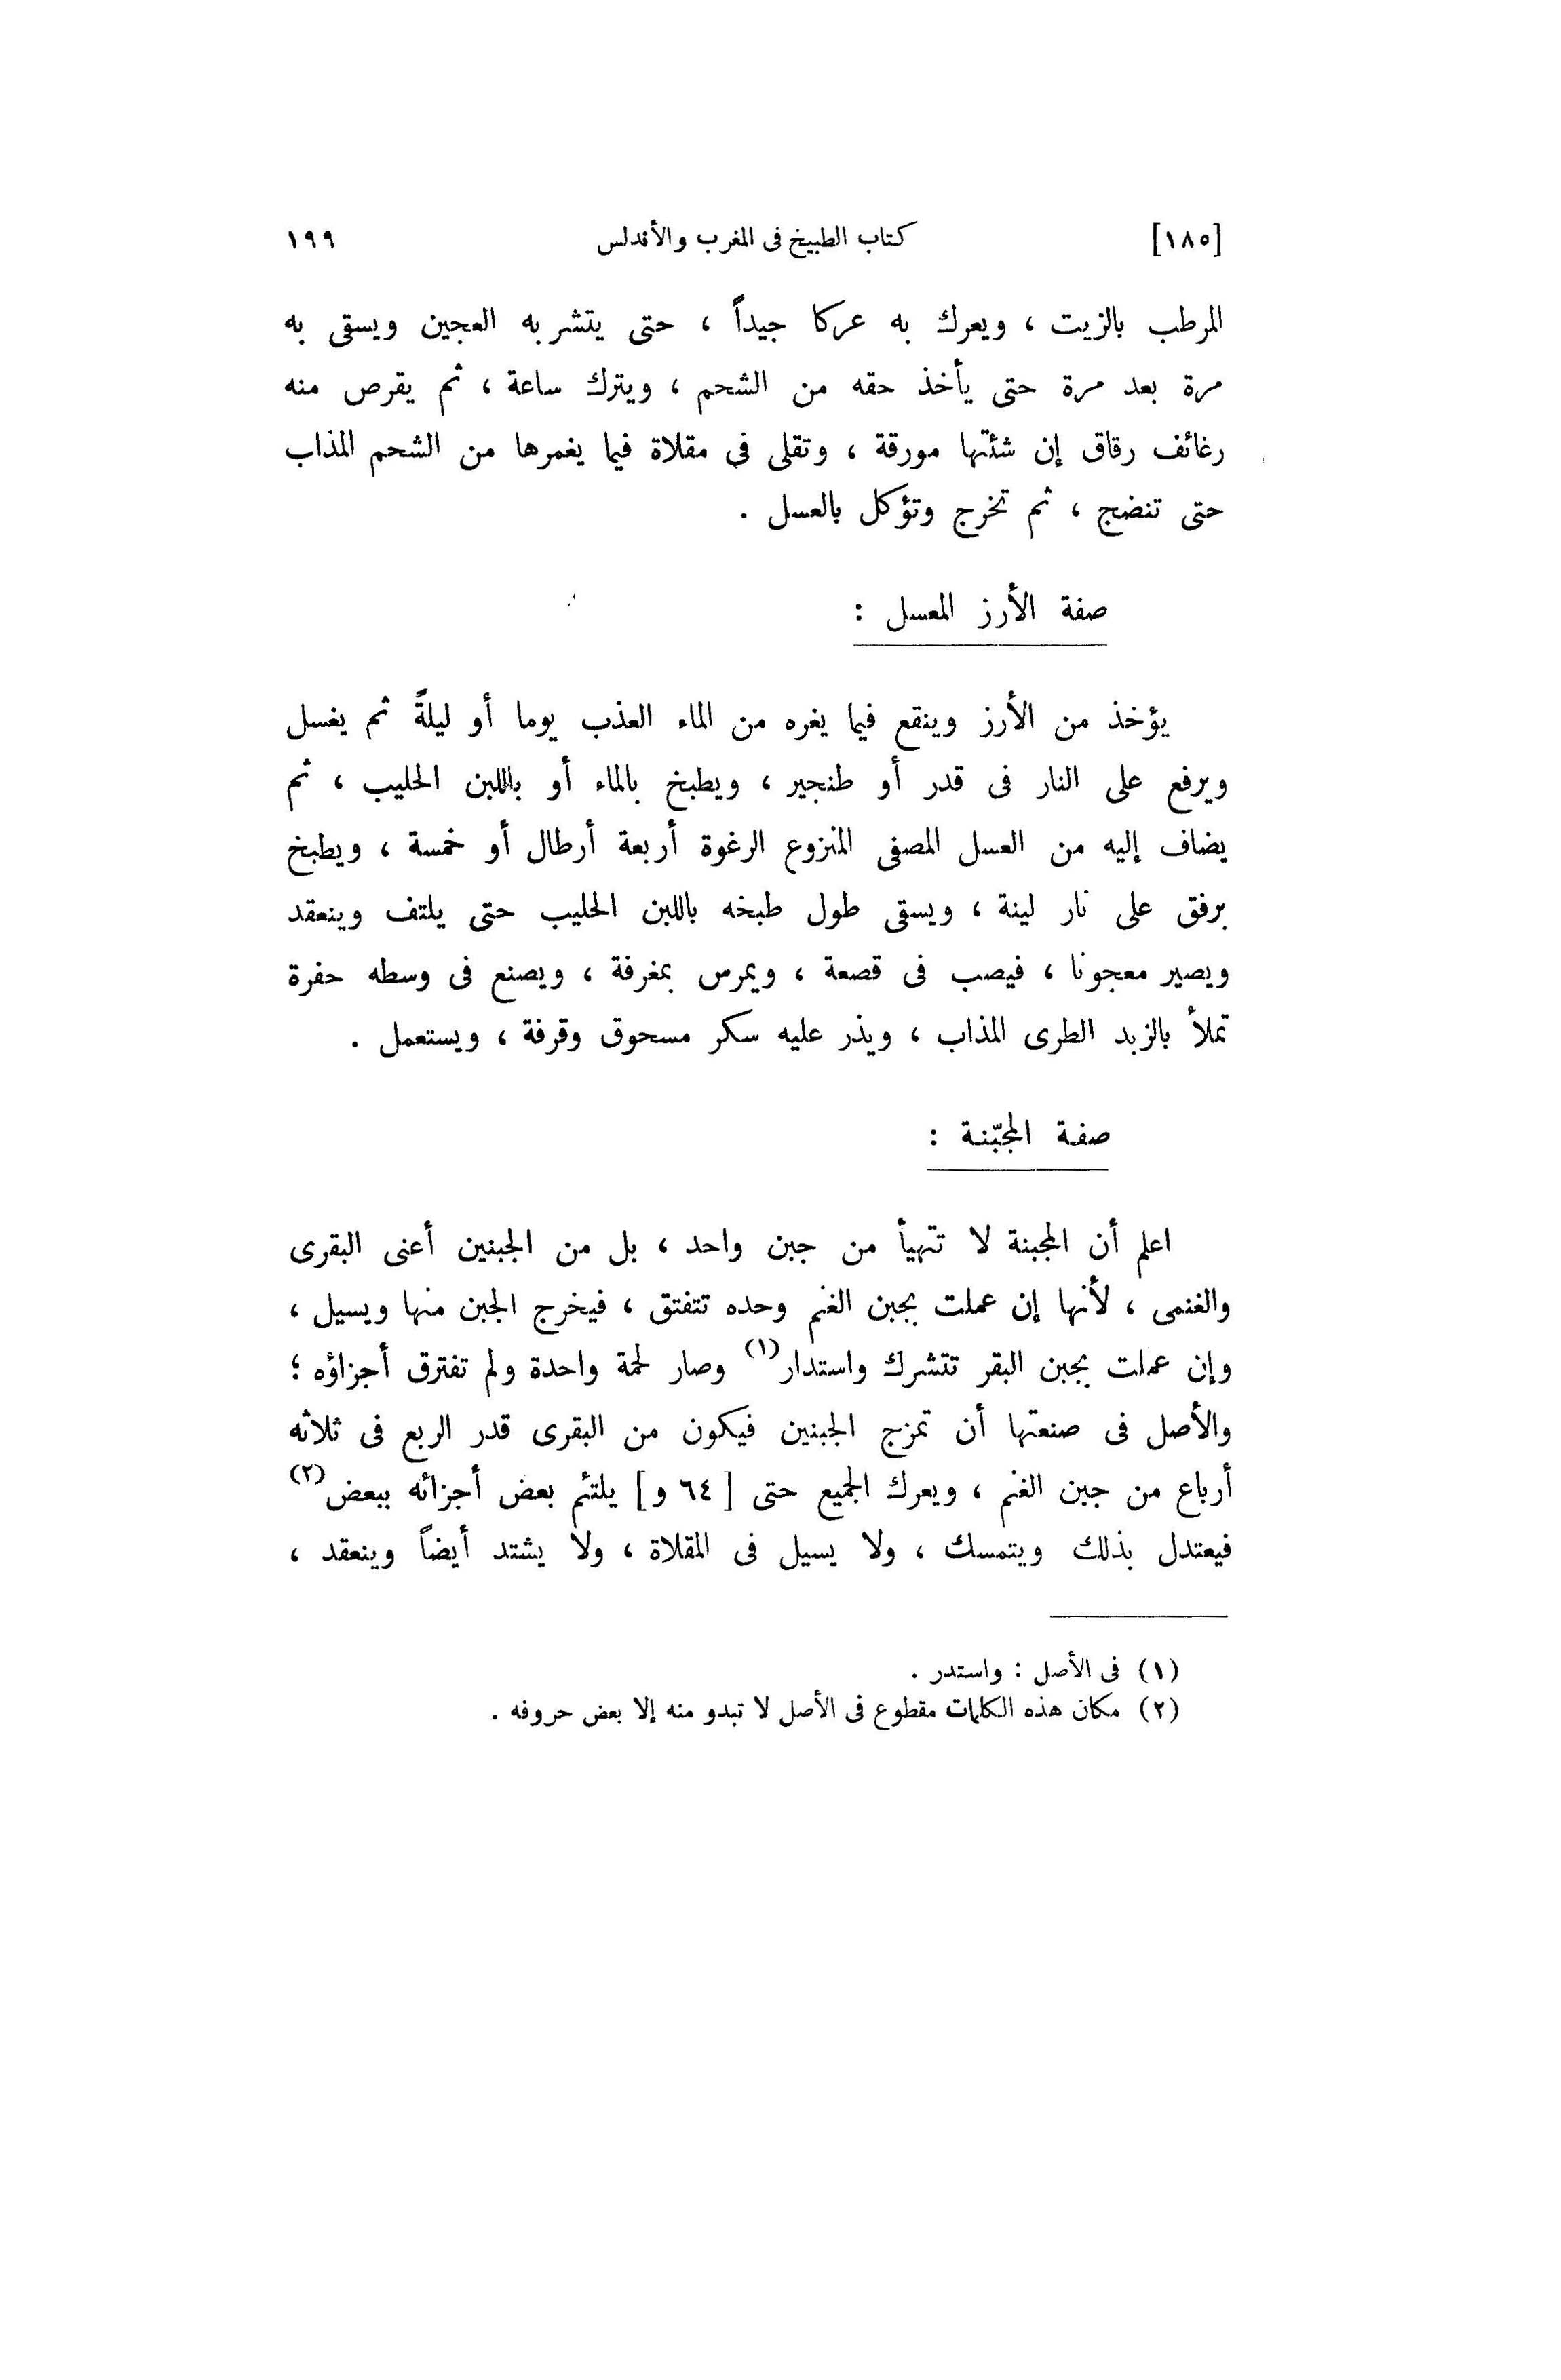 [١٨٥] كتاب الطبيخ فى المغرب والأندلس ١٩٩
المرطب بالزيت ، ويعرك به عركا جيداً ، حتى يتشر به العجين ويسقى به
مرة بعد مرة حتى يأخذ حقه من الشحم ، ويترك ساعة ، ثم يقرص منه
رغائف رقاق إن شئتها مورقة ، وتقلى فى مقلاة فيما يغمرها من الشحم المذاب
حتى تنضج ، ثم تخرج وتؤكل بالعسل .
صفة الأرز المعسل :
يؤخذ من الأرز وينقع فيما يغره من الماء العذب يوما أو ليلةً ثم يغسل
ويرفع على النار فى قدر أو طنجير ، ويطبخ بالماء أو باللبن الحليب ، ثم
يضاف إليه من العسل المصفى المنزوع الرغوة أربعة أرطال أو خمسة ، ويطبخ
برفق على نار لينة ، ويسقى طول طبخه باللبن الحليب حتى يلتف وينعقد
ويصير معجونا ، فيصب فى قصعة ، ويمرس بمغرفة ، ويصنع فى وسطه حفرة
تملأ بالزبد الطرى المذاب ، ويذر عليه سكر مسحوق وقرفة ، ويستعمل .
صفة المجبّنة :
اعلم أن المجبنة لا تتهيأ من جبن واحد ، بل من الجبنين أعنى البقرى
والغنمى ، لأنها إن عملت بجبن الغنم وحده تتفتق ، فيخرج الجبن منها ويسيل ،
وإن عملت بجبن البقر تتشرك واستدار(١) وصار لحمة واحدة ولم تفترق أجزاؤه ؛
والأصل فى صنعتها أن تمزج الجبنين فيكون من البقرى قدر الربع فى ثلاثه
أرباع من جبن الغنم ، ويعرك الجميع حتى [ ٦٤ و ] يلتئم بعض أجزائه ببعض(٢)
فيعتدل بذلك ويتمسك ، ولا يسيل فى المقلاة ، ولا يشتد أيضاً وينعقد ،
(١) فى الأصل : واستدر .
(٢) مكان هذه الكلمات مقطوع فى الأصل لا تبدو منه إلا بعض حروفه .